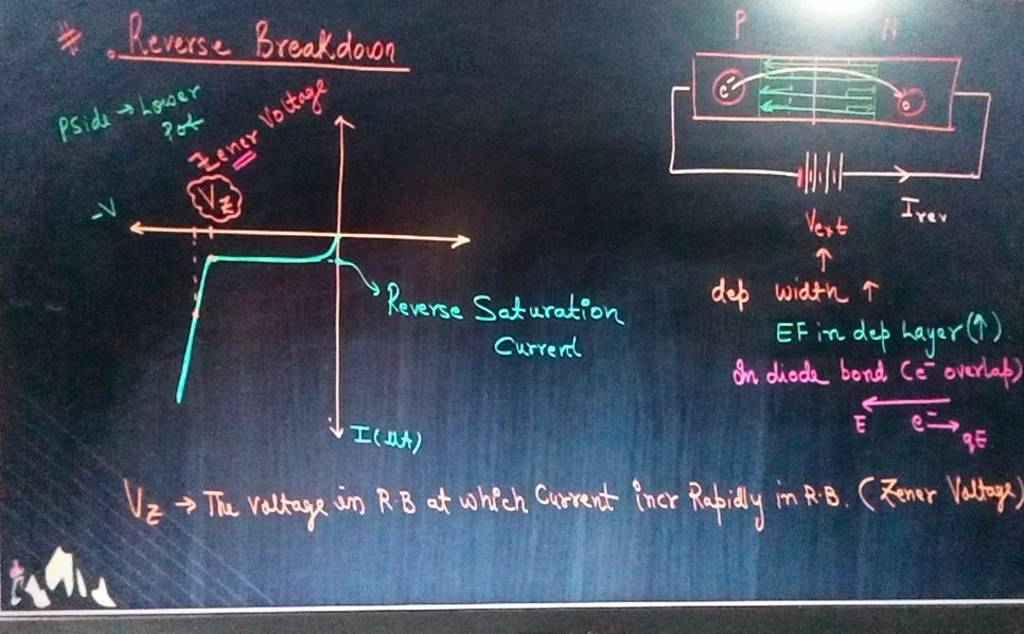 # . Reverse Breakdown
P side → Lower
Pot
Zener Voltage
Vz
-V
Reverse Saturation
Current
I(μA)
P N
e-
Irev
Vext
↑
dep width ↑
EF in dep Layer (↑)
In diode bond (e- overlap)
E e- → qE
Vz → The voltage in R.B at which Current incr Rapidly in R.B. (Zener Voltage)